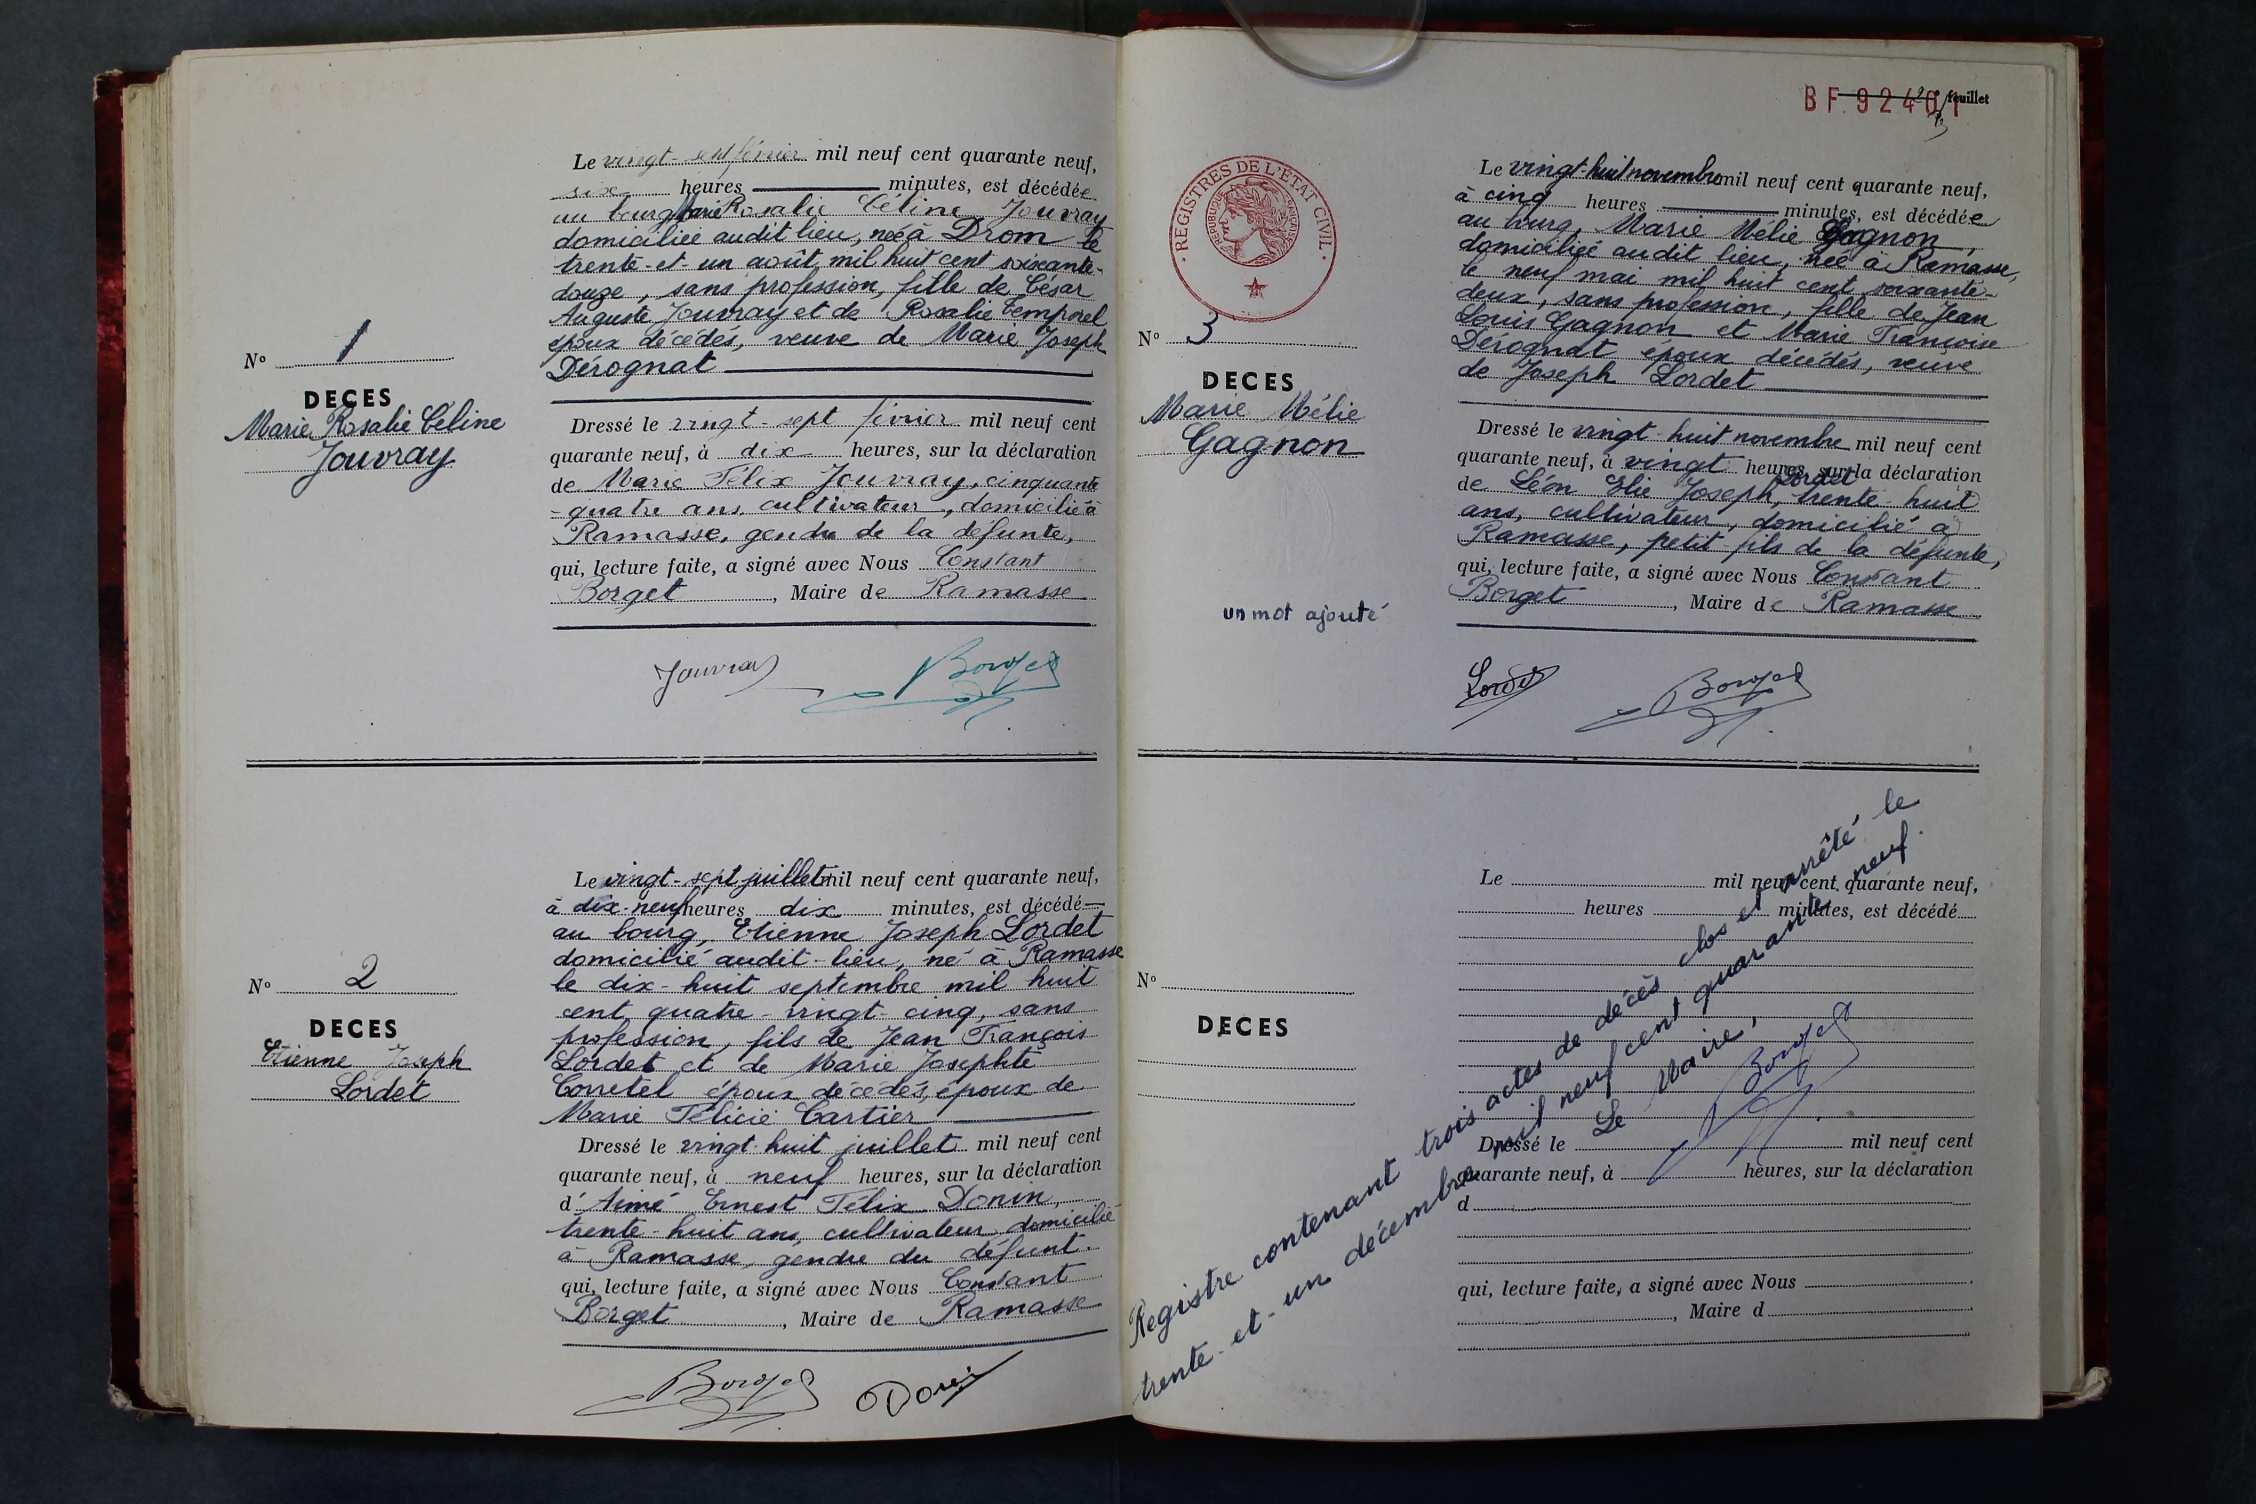 Le vingt-sept février mil neuf cent quarante neuf,
six heures minutes, est décédée
au bourg Marie Rosalie Céline Jouvray
domiciliée audit lieu, née à Drom le
trente-et-un août mil huit cent soixante-
douze, sans profession, fille de César
Auguste Jouvray et de Rosalie Temporel
époux décédés, veuve de Marie Joseph
Dérognat
N° 1
DECES
Marie Rosalie Céline
Jouvray
Dressé le vingt-sept février mil neuf cent
quarante neuf, à dix heures, sur la déclaration
de Marie Félix Jouvray, cinquante
-quatre ans, cultivateur, domicilié à
Ramasse, gendre de la défunte,
qui, lecture faite, a signé avec Nous Constant
Borget, Maire de Ramasse
Jouvray Borget
Le vingt-sept juillet mil neuf cent quarante neuf,
à dix-neuf heures dix minutes, est décédé
au bourg, Etienne Joseph Lordet
domicilié audit-lieu, né à Ramasse
le dix-huit septembre mil huit
cent quatre-vingt-cinq, sans
profession, fils de Jean François
Lordet et de Marie Josephte
Corretel époux décédés, époux de
Marie Félicie Cartier
N° 2
DECES
Etienne Joseph
Lordet
Dressé le vingt-huit juillet mil neuf cent
quarante neuf, à neuf heures, sur la déclaration
d'Aimé Ernest Félix Donin,
trente-huit ans, cultivateur, domicilié
à Ramasse, gendre du défunt.
qui, lecture faite, a signé avec Nous Constant
Borget, Maire de Ramasse
Borget Donin
BF 92401 feuillet
REGISTRES DE L'ÉTAT CIVIL
REPUBLIQUE FRANÇAISE
Le vingt-huit novembre mil neuf cent quarante neuf,
à cinq heures minutes, est décédée
au bourg, Marie Mélie Gagnon,
domiciliée audit lieu, née à Ramasse,
le neuf mai mil huit cent soixante-
deux, sans profession, fille de Jean
Louis Gagnon et Marie Françoise
Dérognat époux décédés, veuve
de Joseph Lordet
N° 3
DECES
Marie Mélie
Gagnon
Dressé le vingt-huit novembre mil neuf cent
quarante neuf, à vingt heures, sur la déclaration
Lordet
de Léon Elie Joseph, trente-huit
ans, cultivateur, domicilié à
Ramasse, petit fils de la défunte,
qui, lecture faite, a signé avec Nous Constant
Borget, Maire de Ramasse
un mot ajouté
Lordet Borget
Le mil neuf cent quarante neuf,
heures minutes, est décédé
N°
DECES
Dressé le mil neuf cent
quarante neuf, à heures, sur la déclaration
d
qui, lecture faite, a signé avec Nous
, Maire d
Registre contenant trois actes de décès clos et arrêté le
trente-et-un décembre mil neuf cent quarante neuf.
Le Maire,
Borget